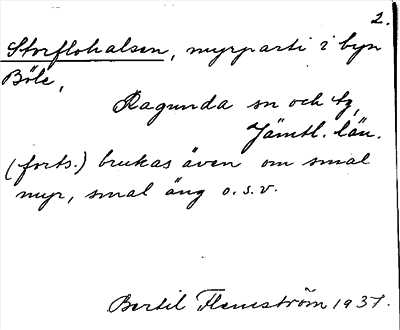 2.
Storflohalsen, myrparti i byn
Böle,
Ragunda sn och tg,
Jämtl. län.
(forts.) brukas även om smal
myr, smal äng o.s.v.
Bertil Flemström 1937.